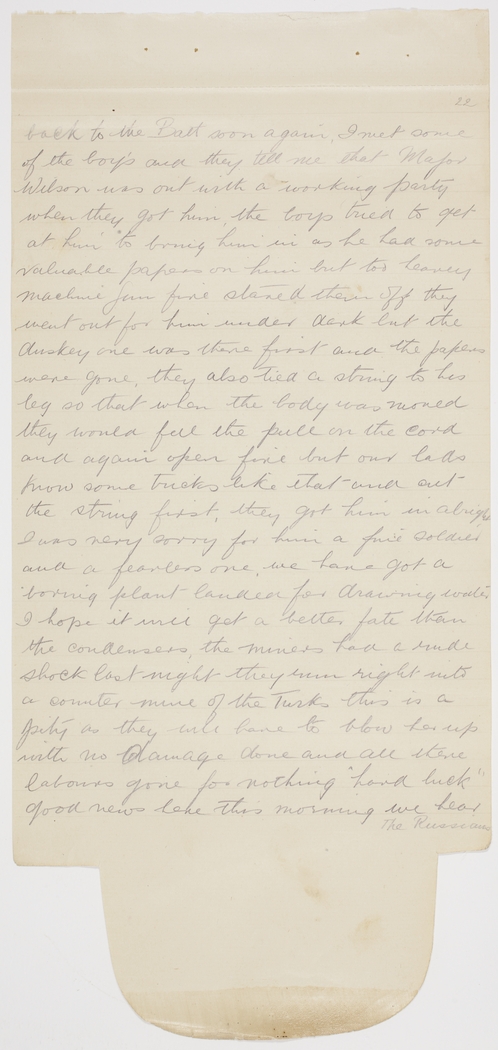 22
back to the Batt soon again, I met some
of the boys and they tell me that Major
Wilson was out with a working party
when they got him the boys tried to get
at him to bring him in as he had some
valuable papers on him but too heavy
machine gun fire staved them off they
went out for him under dark but the
duskey one was there first and the papers
were gone, they also tied a string to his
leg so that when the body was moved
they would fell the pull on the cord
and again open fire but our lads
know some tricks like that and cut
the string first, they got him in alright
I was very sorry for him a fine soldier
and a fearless one, we have got a
boring plant landed for drawing water
I hope it will get a better fate than
the condensers, the miners had a rude
shock last night they run right into
a counter mine of the Turks this is a
pity as they will have to blow her up
with no damage done and all there
labours gone for nothing "hard luck"
good news here this morning we hear
The Russians